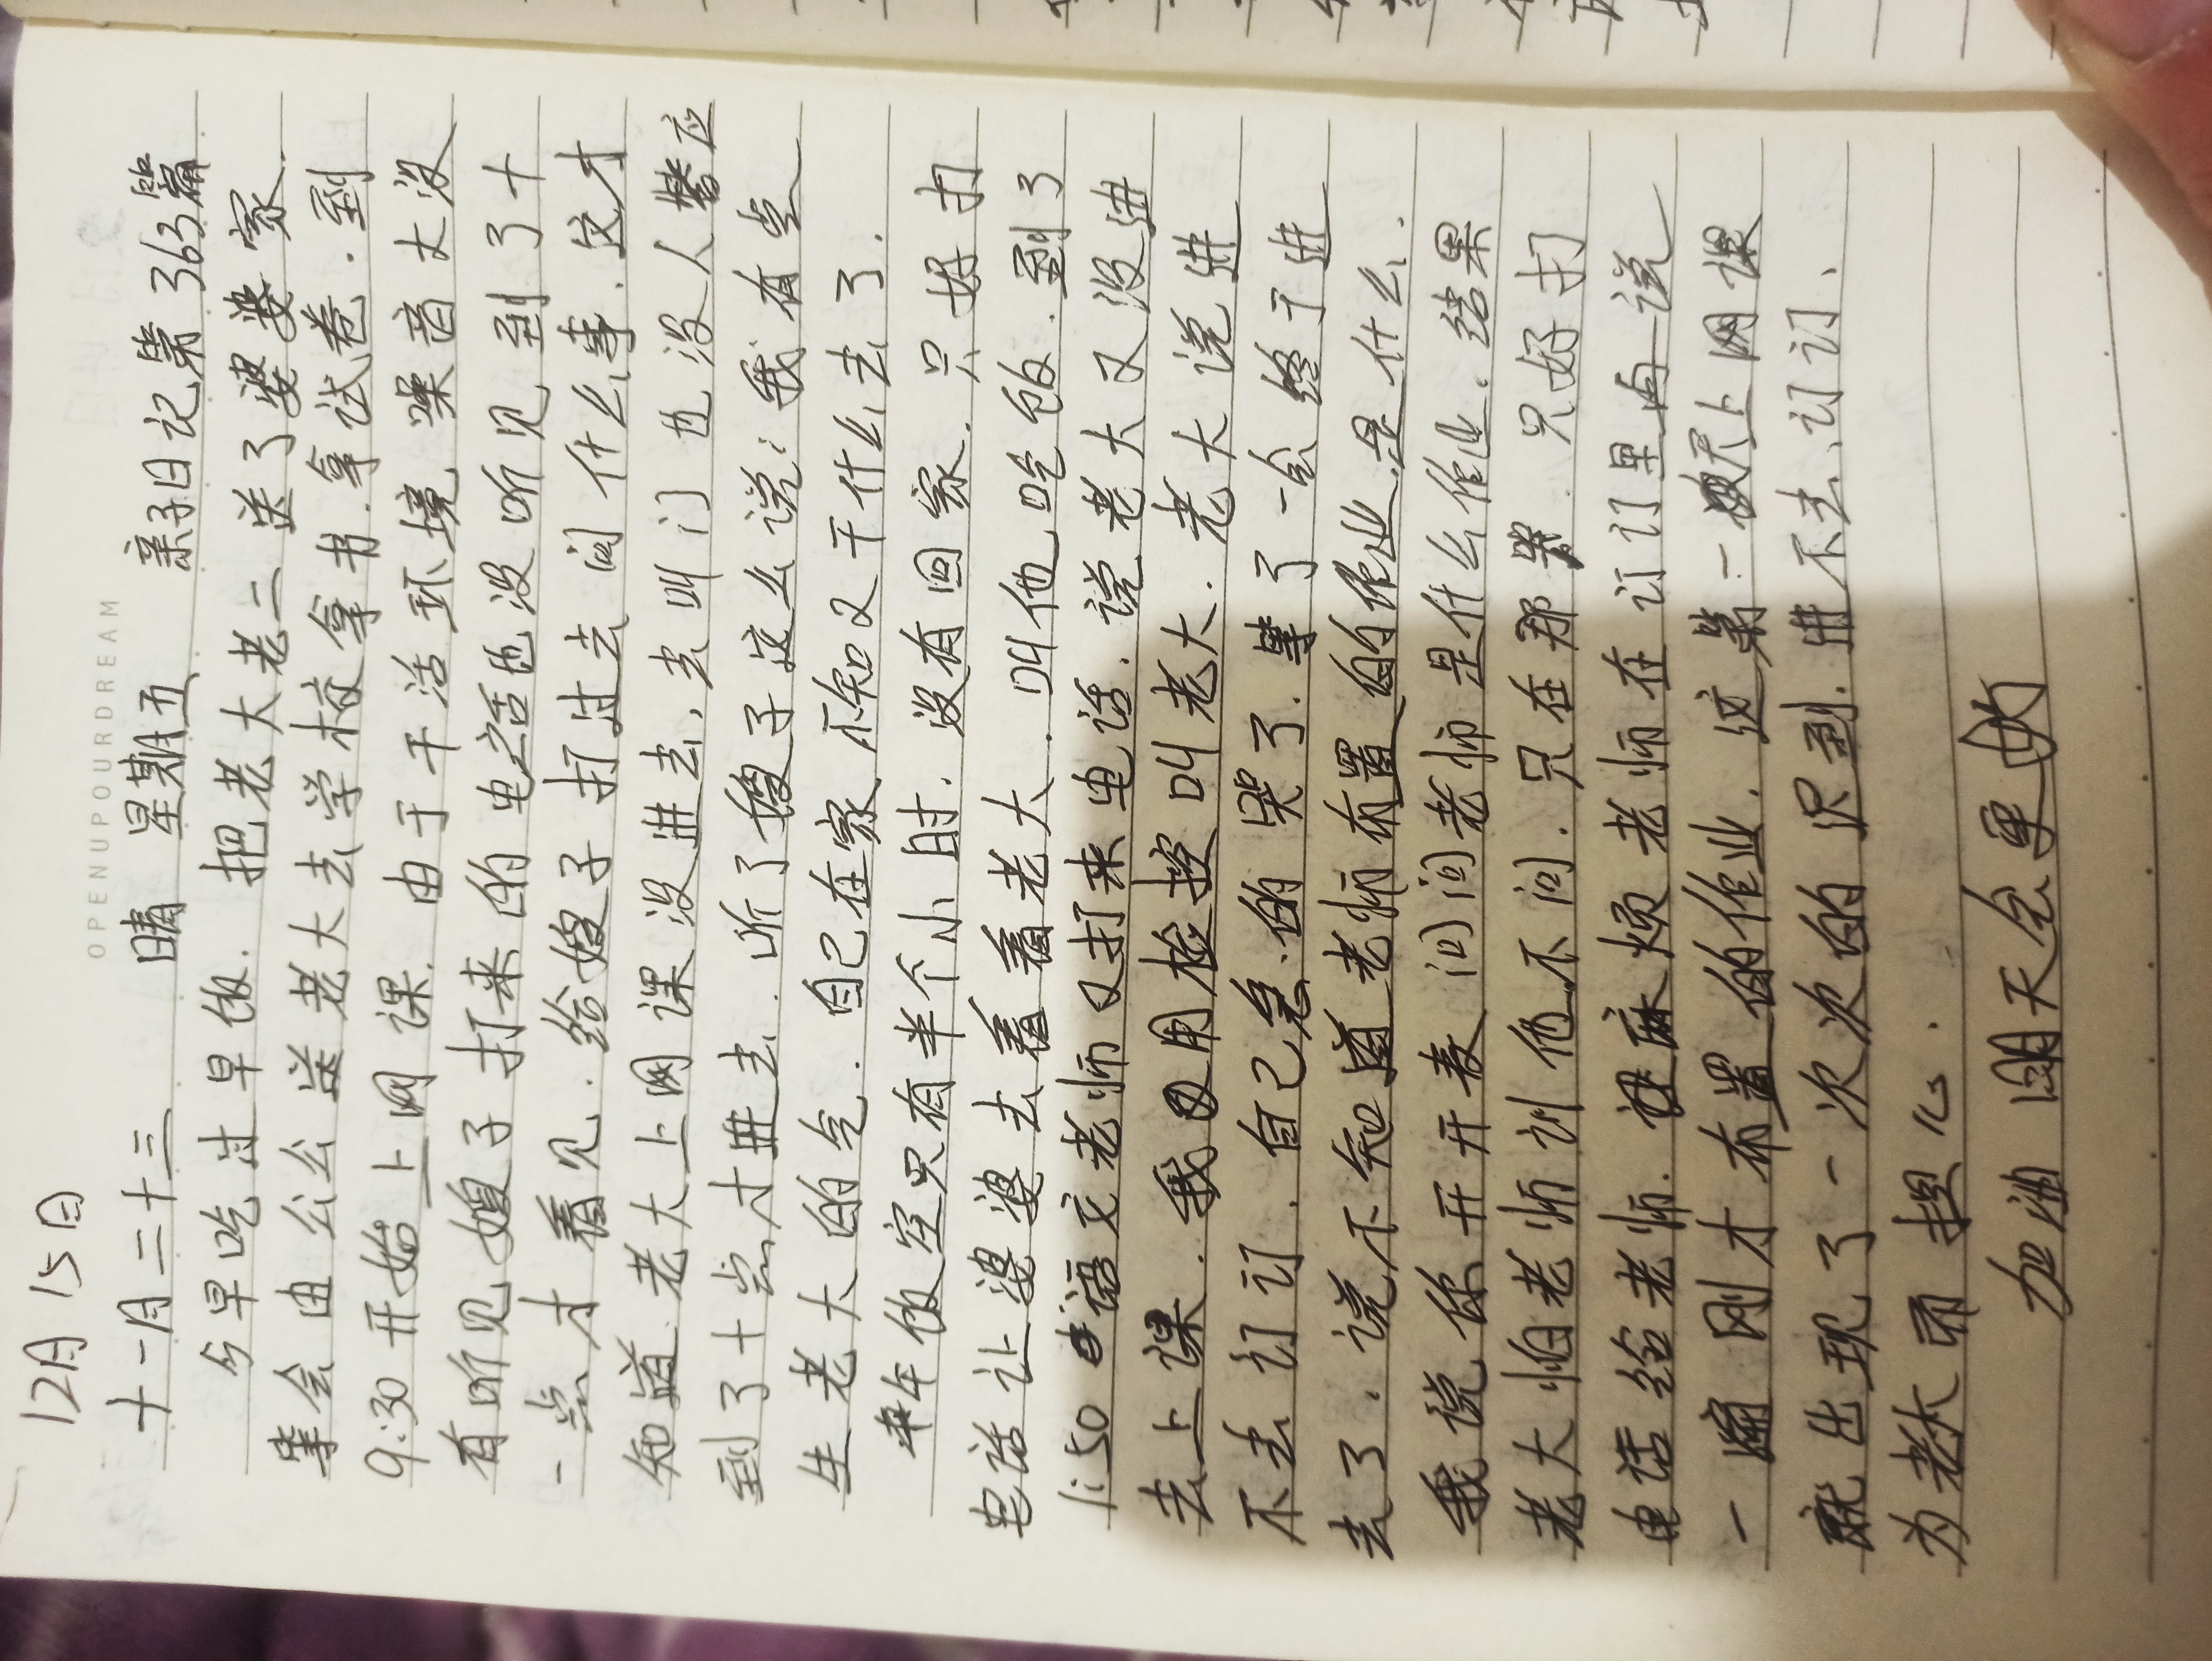 12月15日
OPENUPYOURDREAM
十一月二十三 晴 星期五 亲子日记第363篇
今早吃过早饭.把老大老二送了婆婆家
等会由公公送老大去学校拿书.拿试卷.到
9:30开始上网课.由于干活环境噪音大没
有听见嫂子打来的电话也没听见.到了十
一点才看见.给嫂子打过去问什么事.这才
知道.老大上网课没进去,去叫门也没人答应
到了十点才进去.听了嫂子这么说:我有点
生老大的气.自己在家不知又干什么去了.
午饭空只有半个小时.没有回家.只好打
电话让婆婆去看看老大.叫他吃饭.到了
1:50语文老师又打来电话.说老大又没进
去上课.我又用检控叫老大.老大说进
不去订订.自己急的哭了.等了一会终于进
去了.说不知道老师布置的作业是什么.
我说你开开麦问问老师是什么作业.结果
老大怕老师训他不问.只在那哭.只好打
电话给老师.麻烦老师在订订里面说
一遍刚才布置的作业.这第一天上网课
就出现了一次次的没到.进不去订订.
为老大而担心.
加油明天会更好